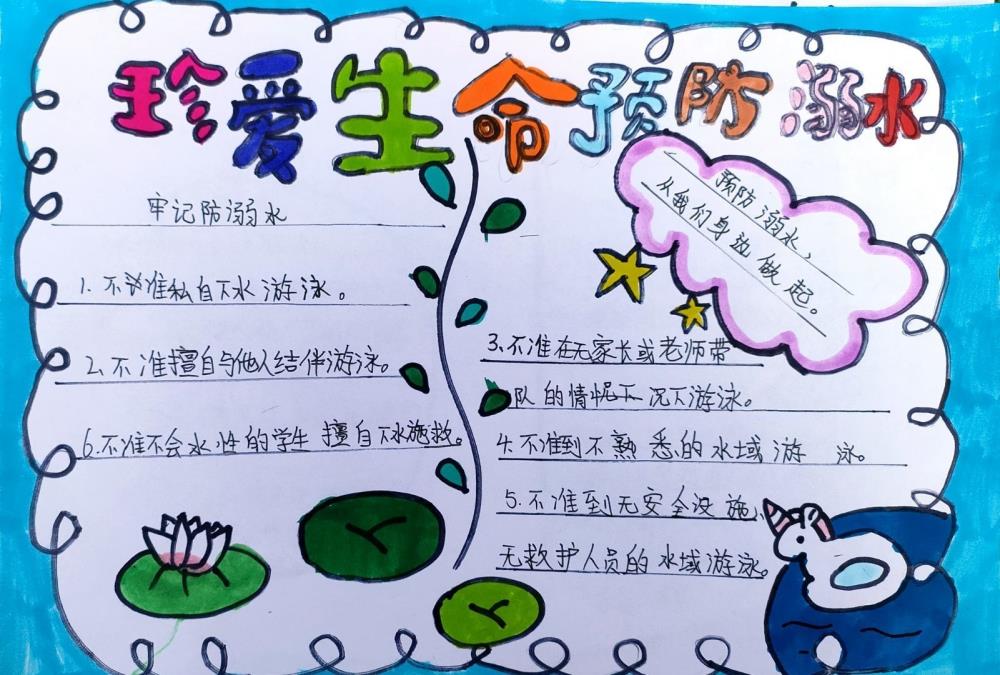 珍爱生命预防溺水
牢记防溺水
1. 不准私自下水游泳。
2. 不准擅自与他人结伴游泳。
6. 不准不会水性的学生擅自下水施救。
预防溺水,
从我们身边做起。
3. 不准在无家长或老师带
队的情怩下 况下游泳。
4. 不准到不熟悉的水域游泳。
5. 不准到无安全没施、
无救护人员的水域游泳。